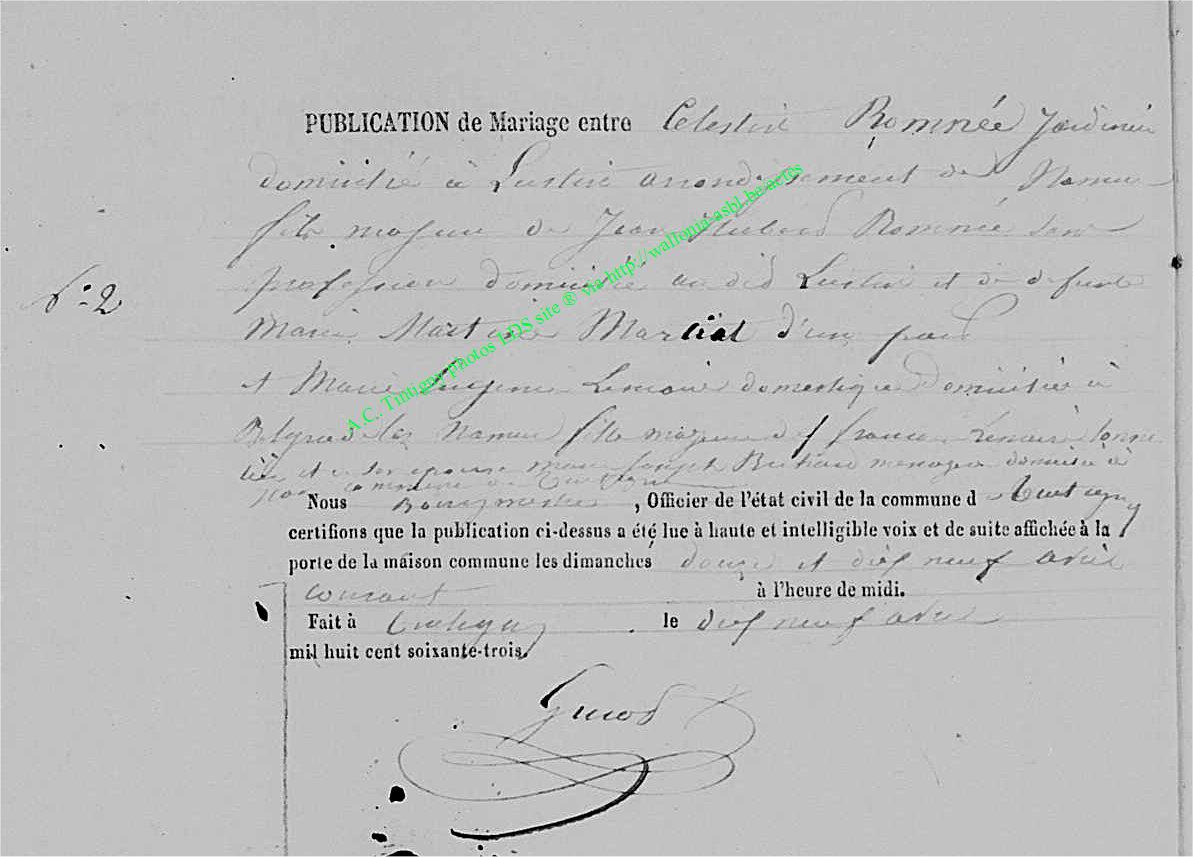 PUBLICATION de Mariage entre Célestin Romnée Jardinier
domicilié à Lustin arrondissement de Namur
fils majeur de Jean Hubert Romnée sans
profession domicilié au dit Lustin et de défunte
Marie Martine Martial d'une part
N° 2
et Marie Eugénie Lemaire domestique domiciliée à
Belgrade lez Namur fille majeure de françois Lemaire
et de son épouse marie Joseph ménagère domiciliés à
commune de Tintigny
Nous Bourgmestre, Officier de l'état civil de la commune d Tintigny
certifions que la publication ci-dessus a été lue à haute et intelligible voix et de suite affichée à la
porte de la maison commune les dimanches douze et dix neuf avril
courant à l'heure de midi.
Fait à Tintigny le dix neuf avril
mil huit cent soixante-trois.
A.C., Tintigny photos LDS site ® via http://wallonia-asbl.be/actes